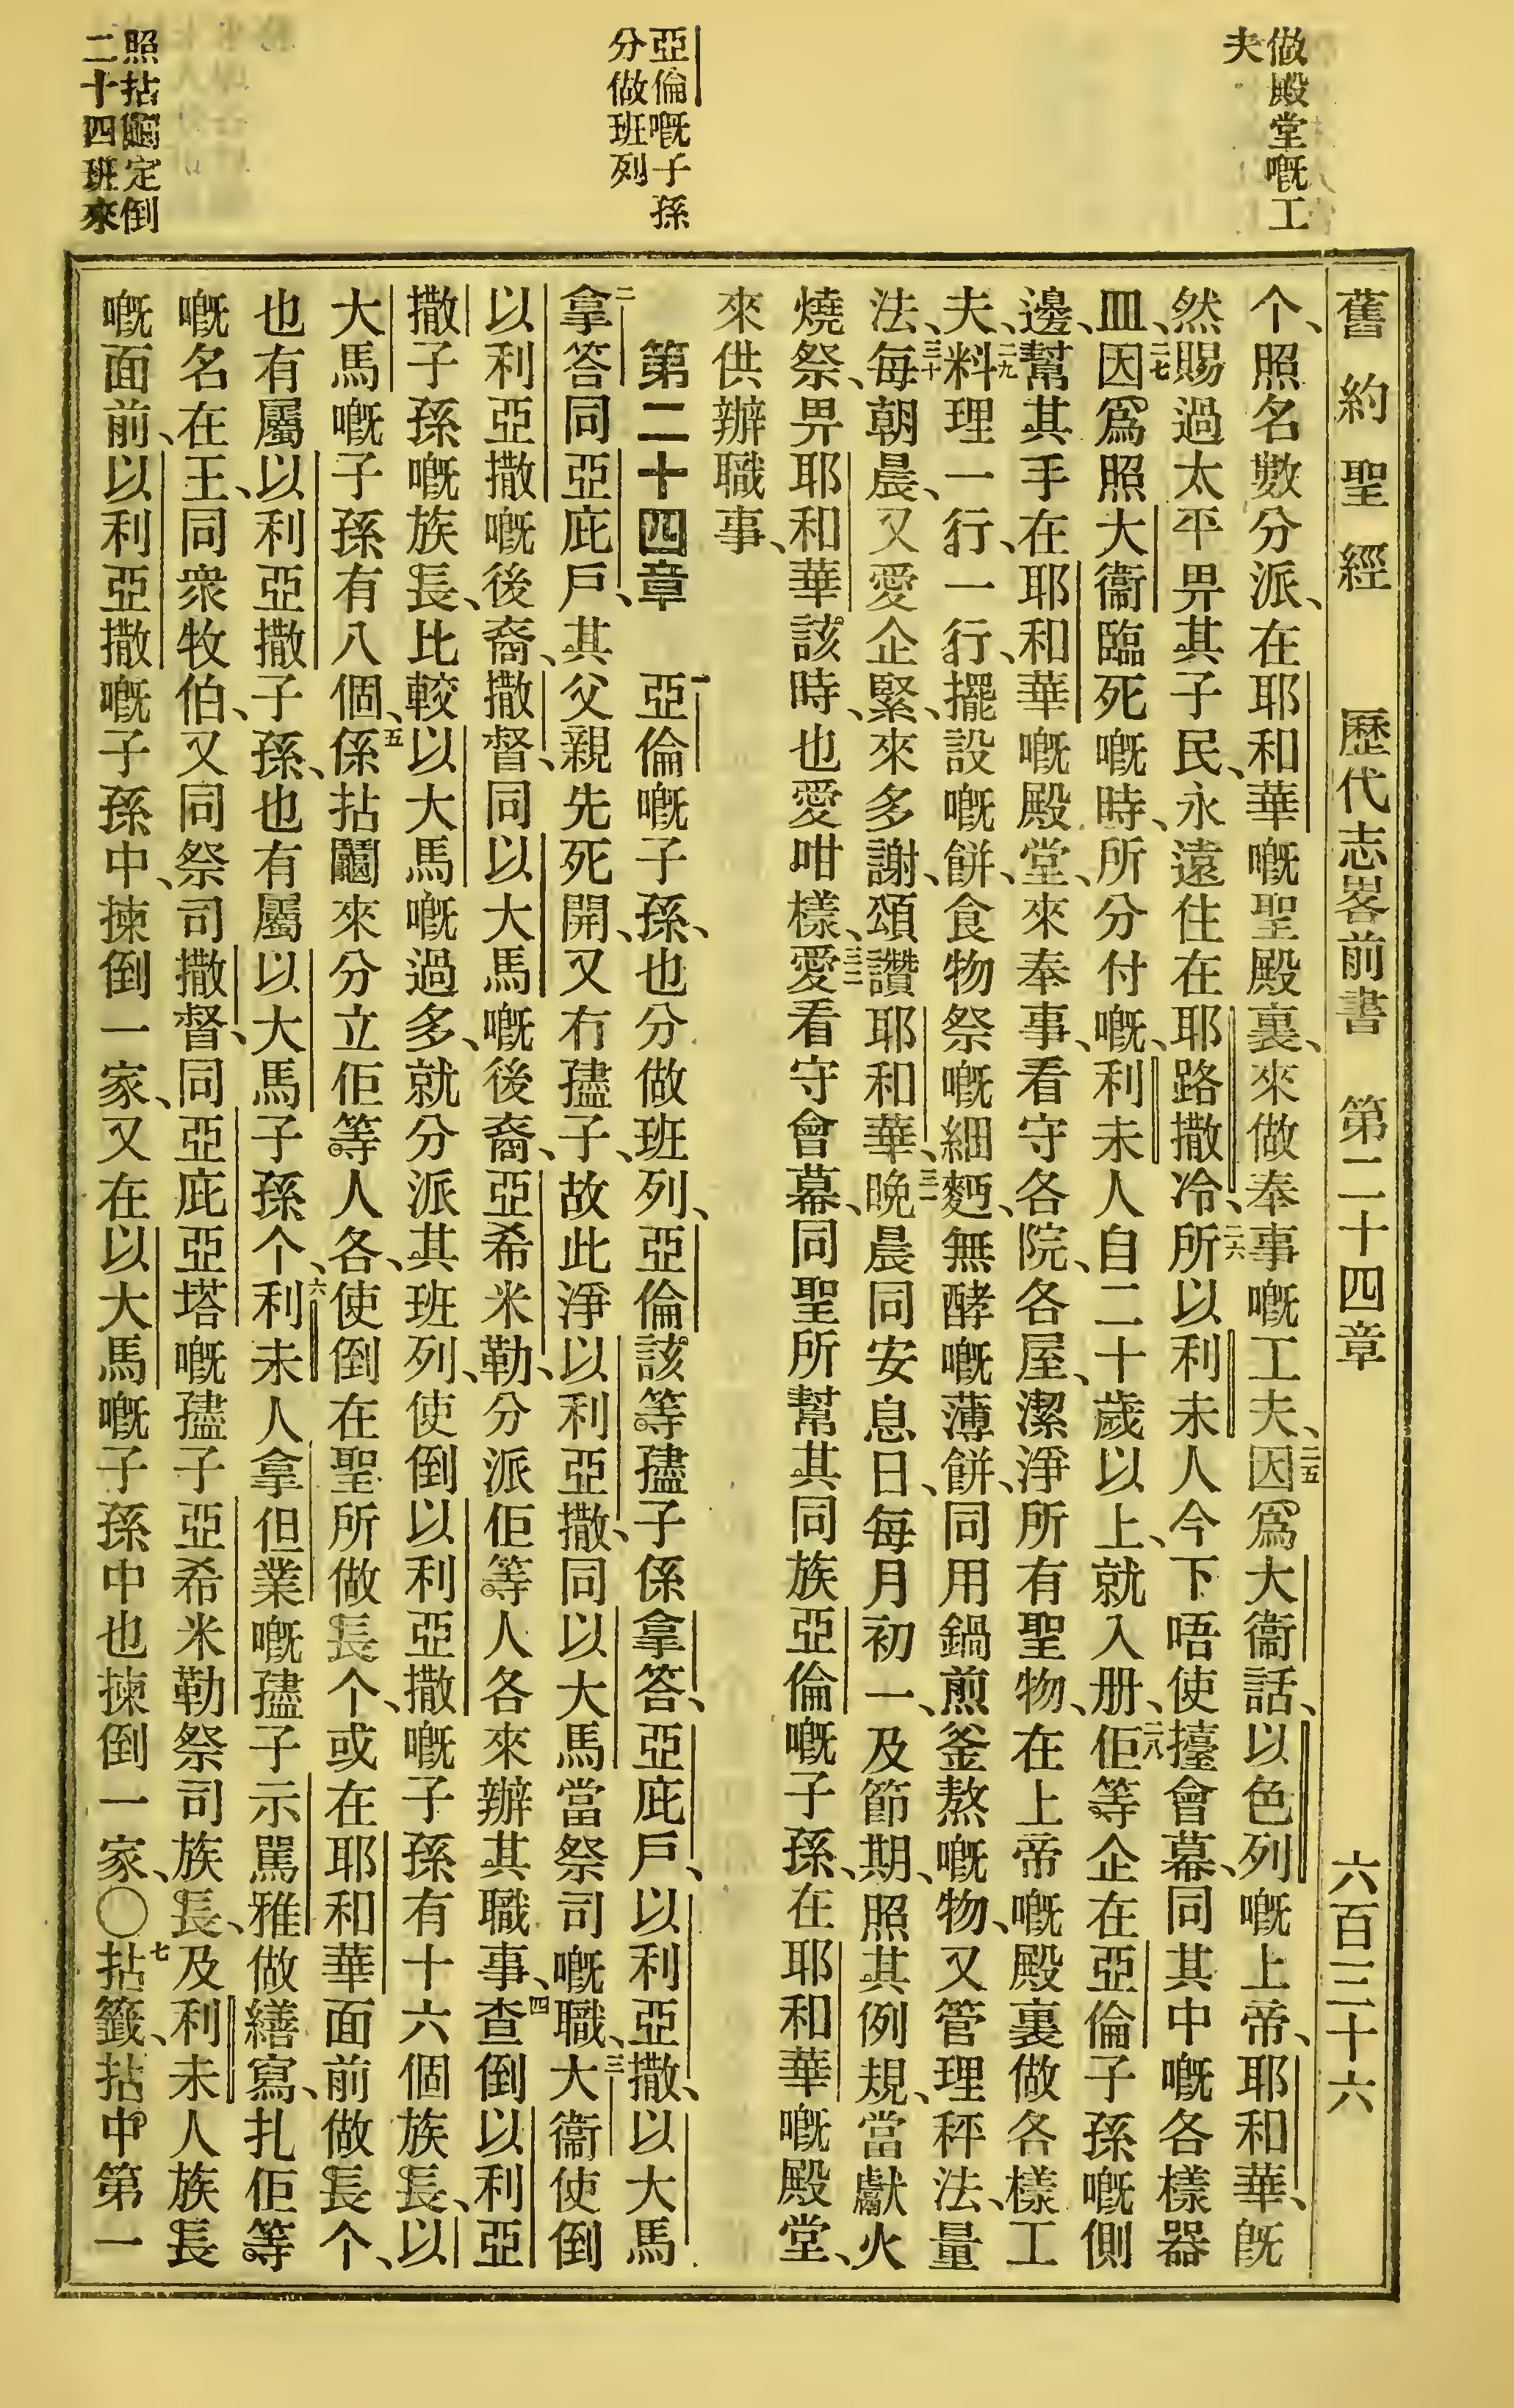 做殿堂嘅工
夫
亞倫嘅子孫
分做班列
照拈鬮定倒
二十四班來
舊約聖經 歷代志畧前書 第二十四章 六百三十六
个、照名數分派、在耶和華嘅聖殿裏、來做奉事嘅工夫、二五因爲大衞話、以色列嘅上帝、耶和華、旣
然賜過太平畀其子民、永遠住在耶路撒冷、二六所以利未人今下唔使擡會幕、同其中嘅各樣器
皿、二七因爲照大衞臨死嘅時、所分付嘅、利未人自二十歲以上、就入册、二八佢等企在亞倫子孫嘅側
邊、幫其手在耶和華嘅殿堂、來奉事、看守各院、各屋、潔淨所有聖物、在上帝嘅殿裏做各樣工
夫、二九料理一行、一行、擺設嘅餅、食物祭嘅細麪、無酵嘅薄餅、同用鍋煎釜熬嘅物、又管理秤法、量
法、三十每朝晨、又愛企緊、來多謝、頌讚耶和華、三一晚晨同安息日、每月初一、及節期、照其例規、當獻火
燒祭、畀耶和華該時、也愛咁樣、三二愛看守會幕、同聖所幫其同族亞倫嘅子孫、在耶和華嘅殿堂、
來供辦職事、
第二十四章 一亞倫嘅子孫、也分做班列、亞倫該等孻子係拿答、亞庇戶、以利亞撒、以大馬
二拿答同亞庇戶、其父親先死開、又冇孻子、故此淨以利亞撒、同以大馬當祭司嘅職、三大衞使倒
以利亞撒嘅後裔、撒督、同以大馬嘅後裔、亞希米勒、分派佢等人各來辦其職事、四查倒以利亞
撒子孫嘅族長、比較以大馬嘅過多、就分派其班列、使倒以利亞撒嘅子孫有十六個族長、以
大馬嘅子孫有八個、五係拈鬮來分立佢等人各、使倒在聖所做長个、或在耶和華面前做長个、
也有屬以利亞撒子孫、也有屬以大馬子孫个、六利未人拿但業嘅孻子示罵雅做繕寫、扎佢等
嘅名在王、同衆牧伯、又同祭司撒督、同亞庇亞塔嘅孻子亞希米勒祭司族長、及利未人族長
嘅面前、以利亞撒嘅子孫中、揀倒一家、又在以大馬嘅子孫中也揀倒一家、〇七拈籤、拈中第一